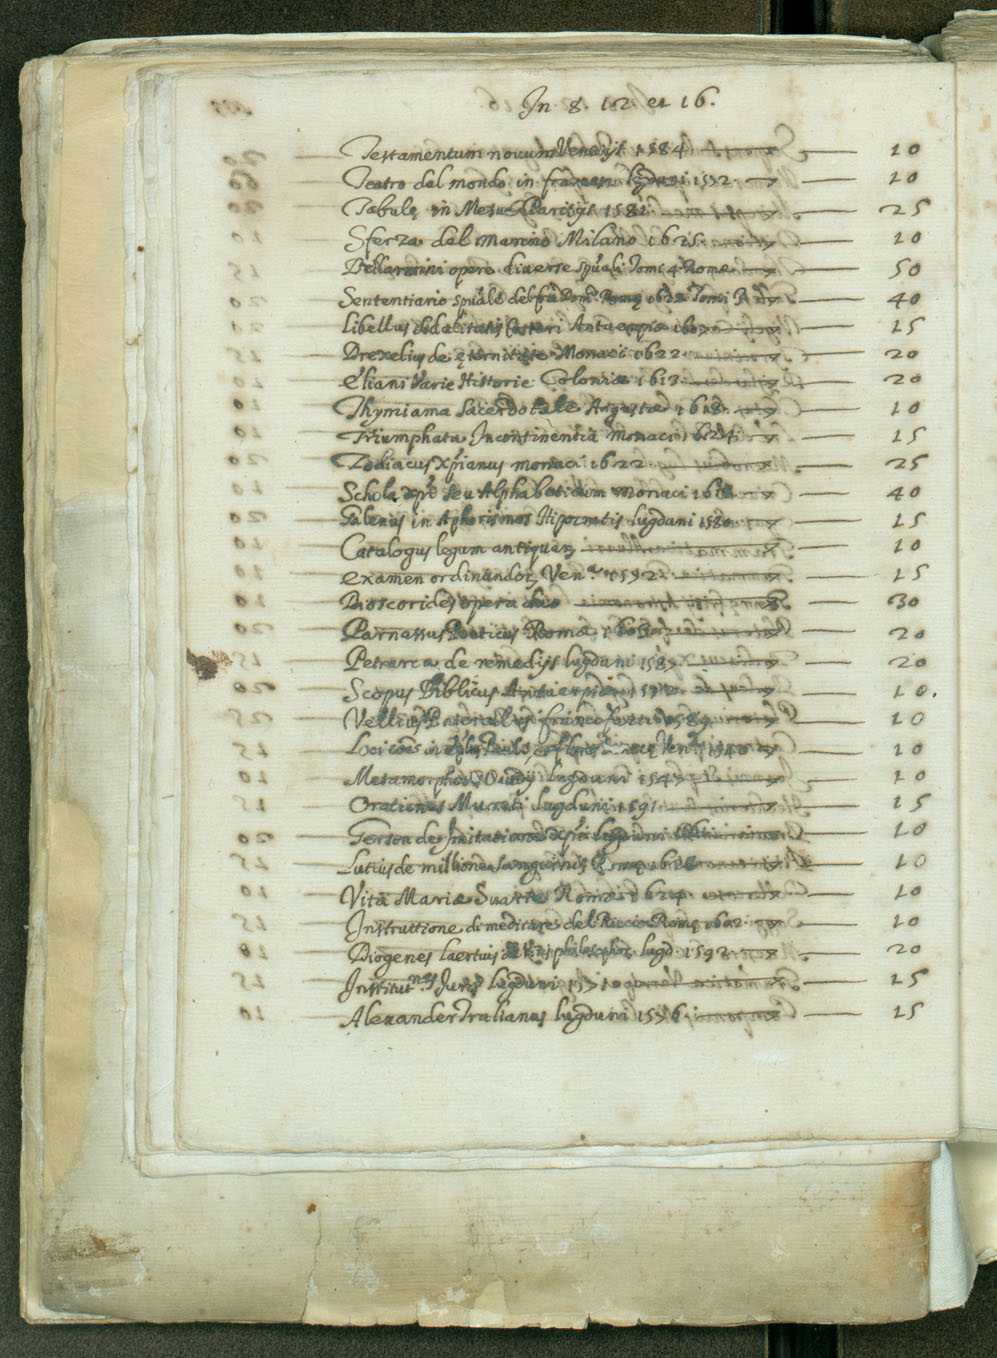 In 8. 12 et 16.
Testamentum novum Venetijs 1584 10
Teatro del mondo in lugduni 1572 10
Tabulę in Mesue Parisijs 1581 25
Sferza del marino Milano 1625 10
Bellarmini opere diverse spũali Tomi 4 Rome 50
Sententiario spũale del fra Romę Tomi 40
libellus sodalitatis Costeri Antuerpiæ 15
Drexelius de ęternitate Monaci 1622 20
Eliani Varie Historie Coloniæ 1613 20
Thymiama Sacerdotale Augustæ 1618 10
Triumphata Incontinentia monaci 1624 15
Zodiacus Xp̃ianus monaci 1622 25
Schola seu Alphabeticum Monaci 1618 40
Galenus in Aphorismos Hipocratis lugduni 1580 15
Catalogus legum antiquarꝫ 10
Examen ordinandorꝫ Ven. 1592 15
Dioscorides opera duo 30
Parnassus Poeticus Romæ 20
Petrarca de remedijs lugduni 1587 20
Scopus Biblicus Antuerpiæ 10.
Velleius Paterculus francofurti 1589 10
Loci in Ven. 10
Metamorphosis Ouidij lugduni 1547 10
Orationes Mureti lugduni 1591 15
Gerson de Imitatione xp̃i lugduni 10
Lutius de sanguinis Romę 10
Vita Mariæ Romæ 1624 10
Instruttione di meditare del Riccio Romę 1602 10
Diogenes laertius de philosophorꝫ lugd. 1592 20
Institut.nes Juris lugduni 1571 15
Alexander Tralianus lugduni 1576 15